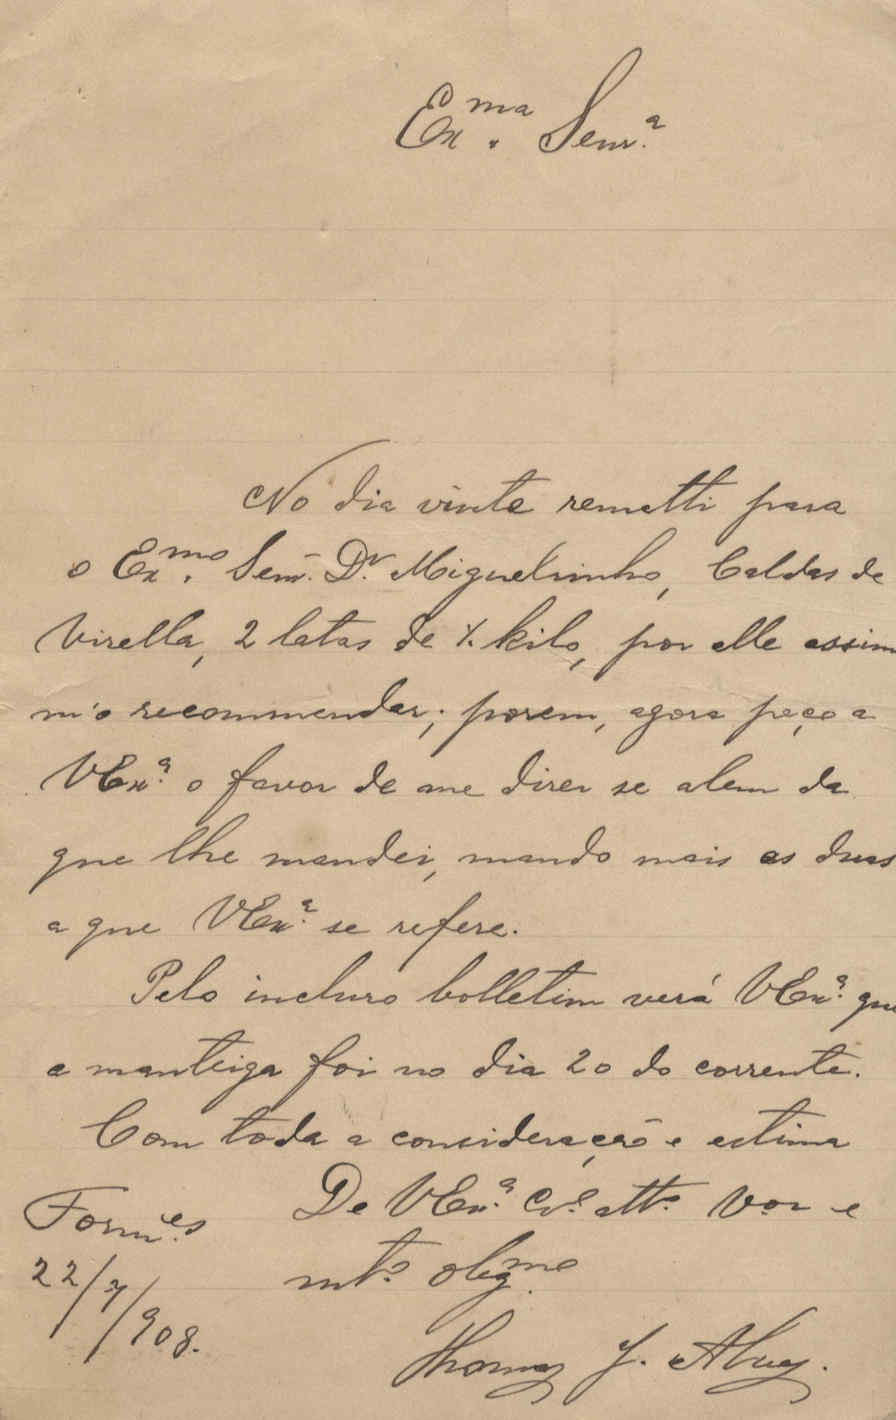 Exma. Senra.
No dia vinte remetti para
o Exmo. Senr. Dr. Miguelsinho, Caldas de
Visella, 2 latas de ½ kilo, por elle assim
m'o recommendar; porem, agora peço a
VExa. o favor de me diser se alem da
que lhe mandei, mando mais as duas
a que VExa. se refere.
Pelo incluso bolletim verá VExa. que
a manteiga foi no dia 20 do corrente.
Com toda a consideração e estima
De VExa. Cro. atto. Vor e
mto. obigmo.
Fornes.
22/7/908.
Thomaz J.